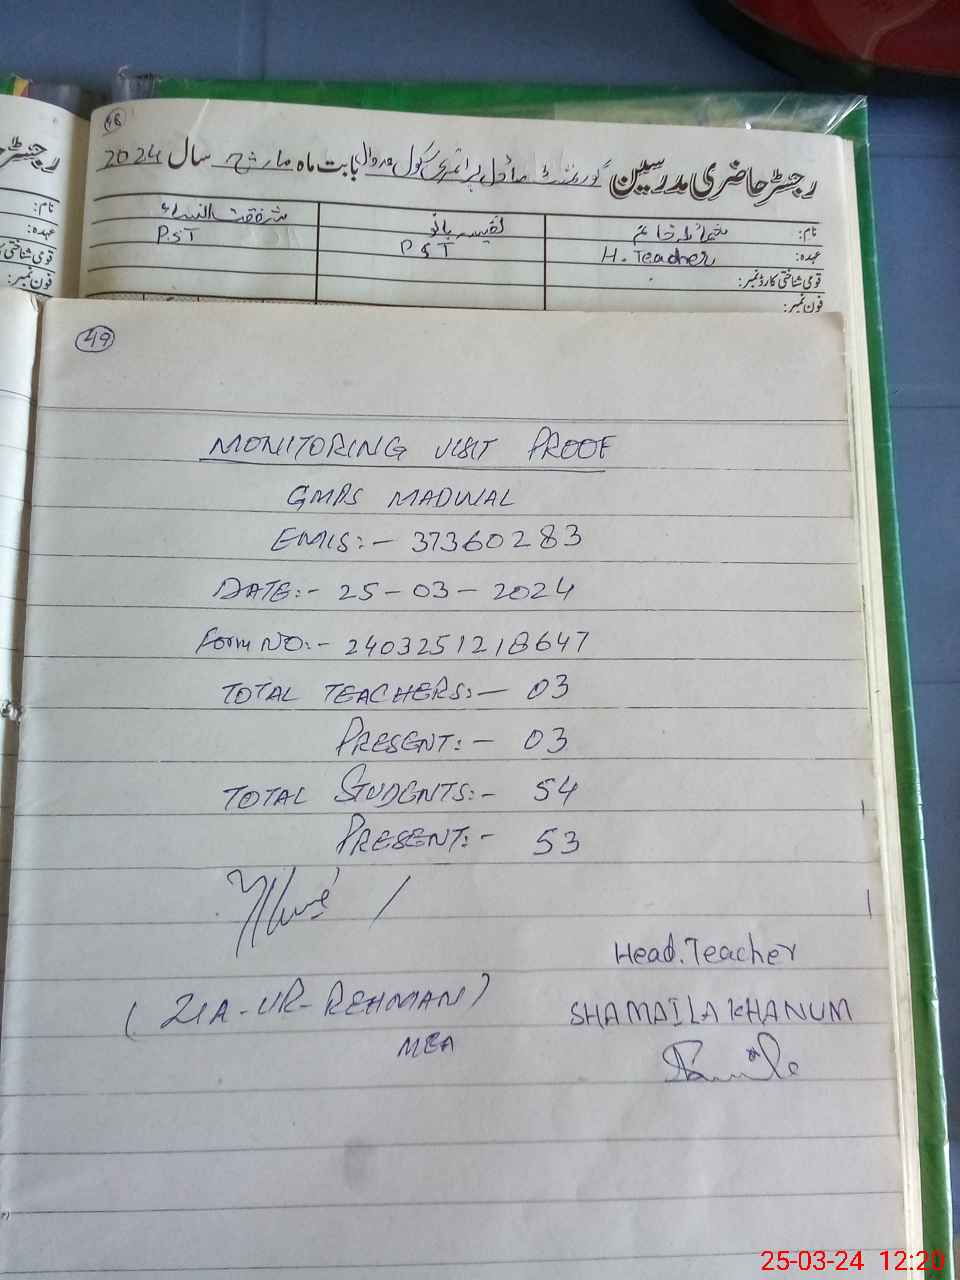 48
رجسٹر حاضری مدرسین گورنمنٹ ماڈل پرائمری سکول مدوال بابت ماہ مارچ سال 2024
نام: شمائلہ خانم نفیسہ بانو شفقت النساء
عہدہ: H. Teacher PST PST
قومی شناختی کارڈ نمبر:
فون نمبر:
رجسٹر
نام:
عہدہ:
قومی شناختی
فون نمبر:
49
MONITORING VISIT PROOF
GMPS MADWAL
EMIS:- 37360283
DATE:- 25-03-2024
Form NO:- 2403251218647
TOTAL TEACHERS:- 03
PRESENT:- 03
TOTAL STUDENTS:- 54
PRESENT:- 53
Head.Teacher
(ZIA-UR-REHMAN) SHAMAILA KHANUM
MEA
25-03-24 12:20